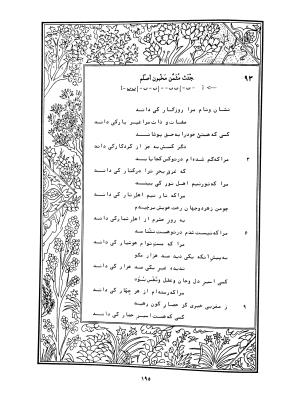 ۹۳
مجتث مثمّن مخبون اصلم
نشان و نام مرا روزگار کی داند
صفات و ذات مرا غیر یار کی داند
کسی که هستی خود را به حق بپوشاند
دگر کسش به جز از کردگار کی داند
۳ مرا که گم شده‌ام در تو کس کجا یابد
که غرق بحر ترا در کنار کی داند
مرا که نور نیم اهل نور کی بیند
مرا که نار نیم اهل نار کی داند
چو من ز هر دو جهان رخت خویش برچیدم
به روز حشرم از اهل شمار کی داند
۶ مرا که نیست شدم در تو هست نشناسد
مرا که مست توام هوشیار کی داند
به پیش آنکه یکی دید صد هزار مگو
ندیده غیر یکی صد هزار کی داند
کسی اسیر دل و جان و عقل و نفس
مرا که رسته‌ام از هر چهار کی داند
۹ ز مغربی خبری گر حصار کون رهید
کسی که هست اسیر حصار کی داند
۱۹۵